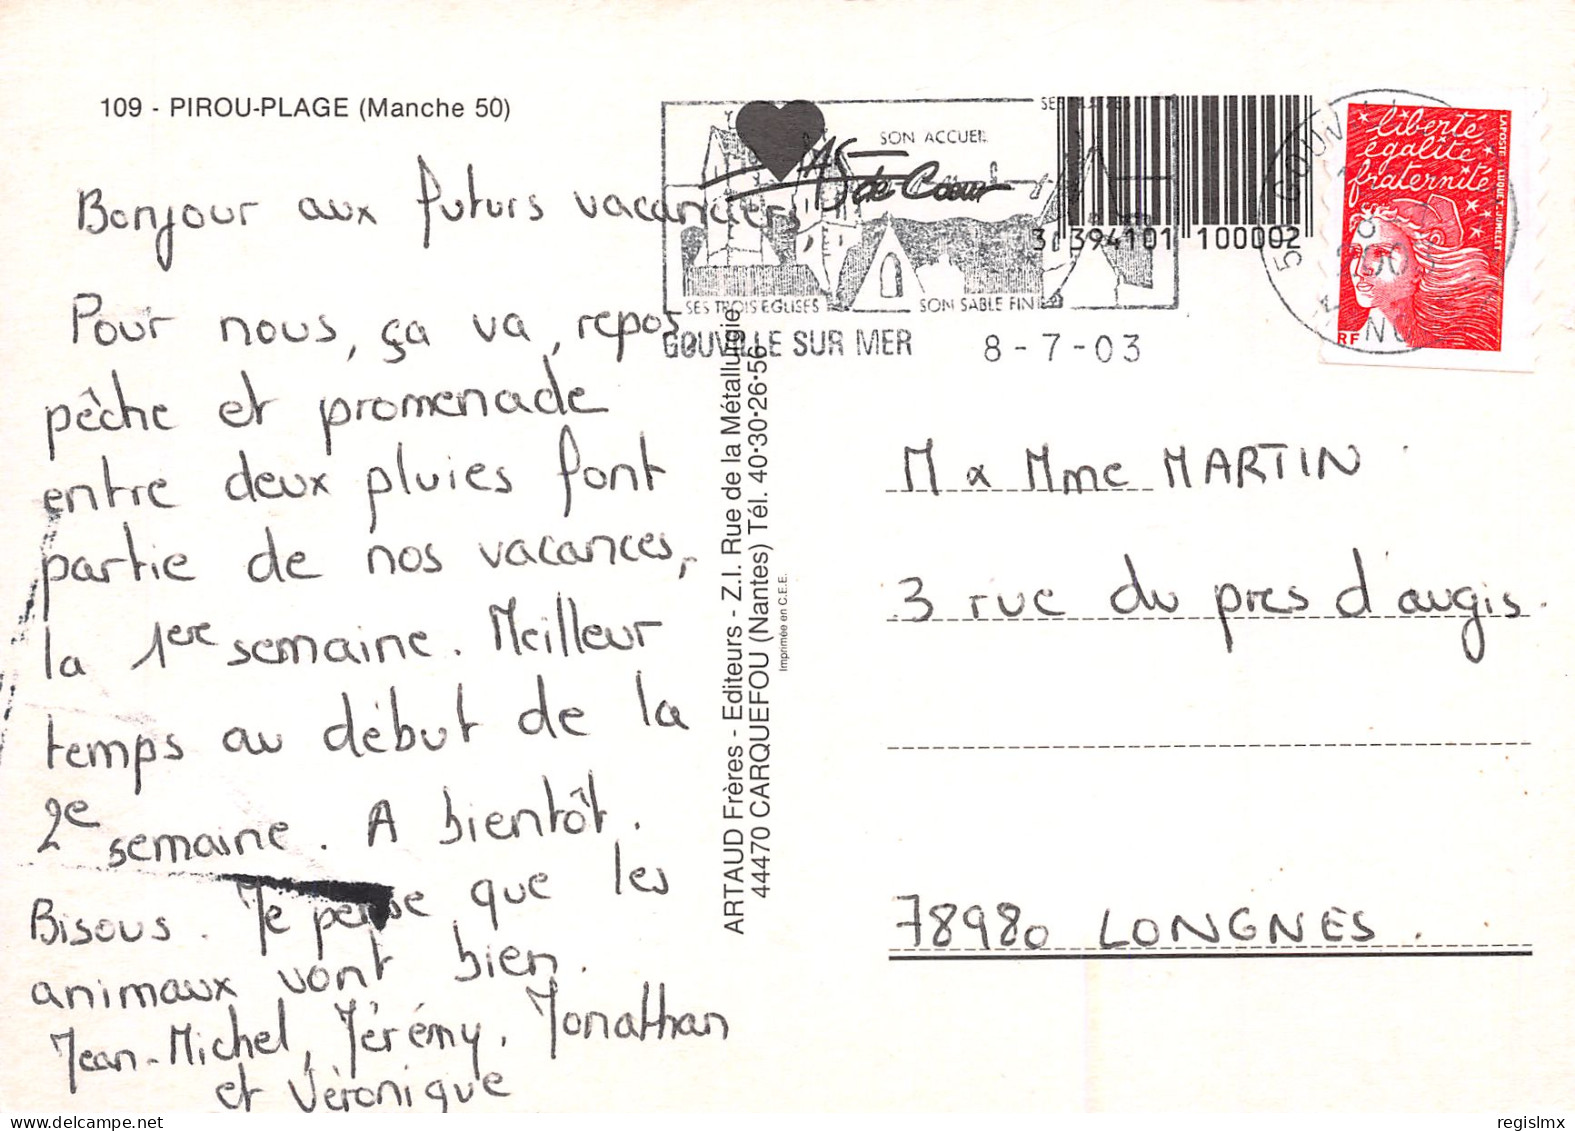 109 - PIROU-PLAGE (Manche 50)
Bonjour aux futurs vacanciers
Pour nous, ça va, repos,
pêche et promenade
entre deux pluies font
partie de nos vacances,
la 1ère semaine. Meilleur
temps au début de la
2e semaine. A bientôt.
Bisous. Je pense que les
animaux vont bien.
Jean-Michel, Jérémy, Jonathan
et Véronique
ARTAUD Frères - Editeurs - Z.I. Rue de la Métallurgie
44470 CARQUEFOU (Nantes) Tél. 40·30·26·56
Imprimée en C.E.E.
SON ACCUEIL
AS de Coeur
SES TROIS EGLISES
SON SABLE FIN
GOUVILLE SUR MER
8-7-03
3 394101 100002
liberté
égalité
fraternité
LAPOSTE LUQUET-JUMELET
RF
M & Mme MARTIN
3 rue du pres d'augis.
78980 LONGNES.
regislmx